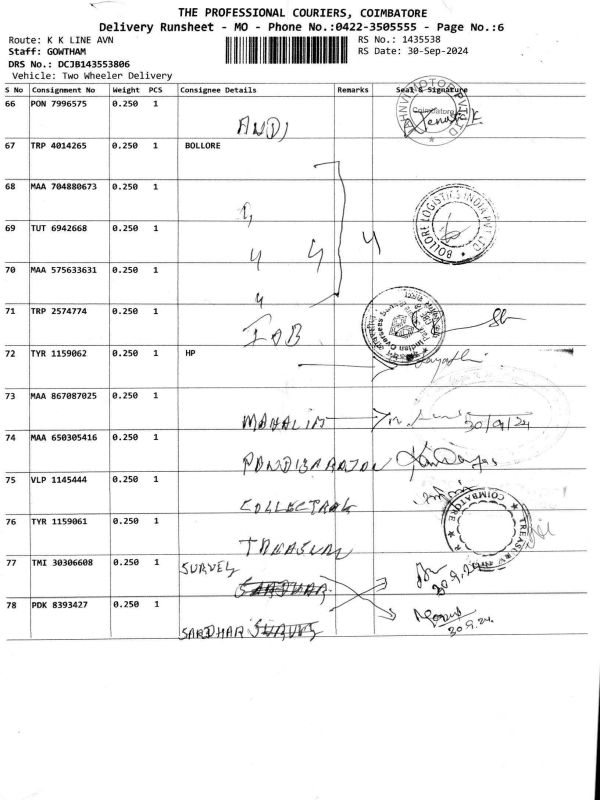 THE PROFESSIONAL COURIERS, COIMBATORE
Delivery Runsheet - MO - Phone No.:0422-3505555 - Page No.:6
Route: K K LINE AVN
RS No.: 1435538
Staff: GOWTHAM
RS Date: 30-Sep-2024
DRS No.: DCJB143553806
Vehicle: Two Wheeler Delivery
S No Consignment No Weight PCS Consignee Details Remarks Seal & Signature
66 PON 7996575 0.250 1
ANDI
Coimbatore
67 TRP 4014265 0.250 1 BOLLORE
68 MAA 704880673 0.250 1
BOLLORE LOGISTICS INDIA PVT. LTD.
69 TUT 6942668 0.250 1
70 MAA 575633631 0.250 1
71 TRP 2574774 0.250 1
IOB
Indian Overseas
72 TYR 1159062 0.250 1 HP
73 MAA 867087025 0.250 1
MAHALIM
30/9/24
74 MAA 650305416 0.250 1
75 VLP 1145444 0.250 1
76 TYR 1159061 0.250 1
COIMBATORE TREASURY
77 TMI 30306608 0.250 1 SURVEY
SARDHAR
30.9.24
78 PDK 8393427 0.250 1
SARDHAR SURVEY
30.9.24